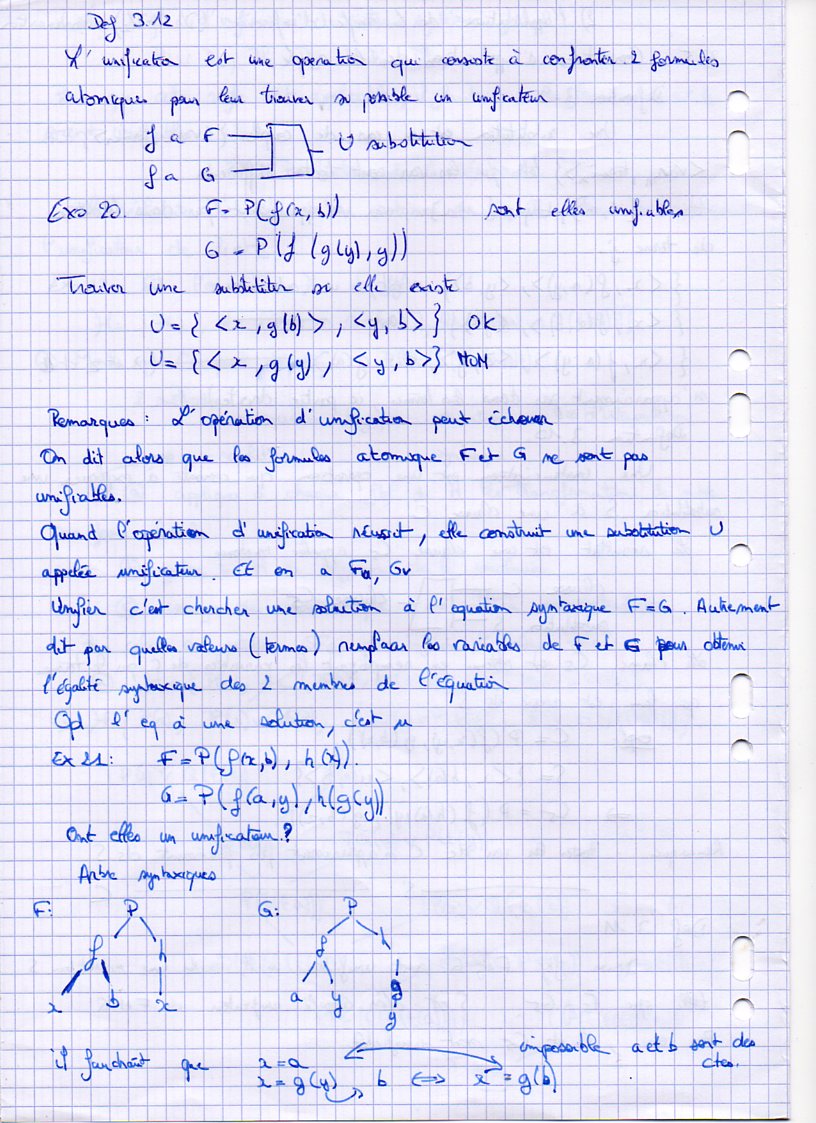 Def 3.12
L'unification est une operation qui consiste à confronter 2 formules
atomiques pour leur trouver si possible un unificateur
f a F
U substitution
f a G
Exo 20. F = P(f(x, b)) sont elles unifiables
G = P(f (g(y), y))
Trouver une substitution si elle existe
U = { <x, g(b)>, <y, b> } OK
U = { <x, g(y), <y, b>} NON
Remarques : L'opération d'unification peut échouer
On dit alors que les formules atomique F et G ne sont pas
unifiables.
Quand l'opération d'unification réussit, elle construit une substitution U
appelée unificateur. Et on a Fu, Gu
Unifier c'est chercher une solution à l'equation syntaxique F=G. Autrement
dit par quelles valeurs (termes) remplacer les variables de F et G pour obtenir
l'égalité syntaxique des 2 membres de l'équation
Qd l'eq à une solution, c'est u
Ex 21: F = P(f(x,b), h(x)).
G = P(f(a,y), h(g(y))
Ont elles un unificateur?
Arbre syntaxiques
F: P G: P
f h f h
x b x a y g
y
il faudrait que x = a impossible a et b sont des
ctes.
x = g(y) b <=> x = g(b)